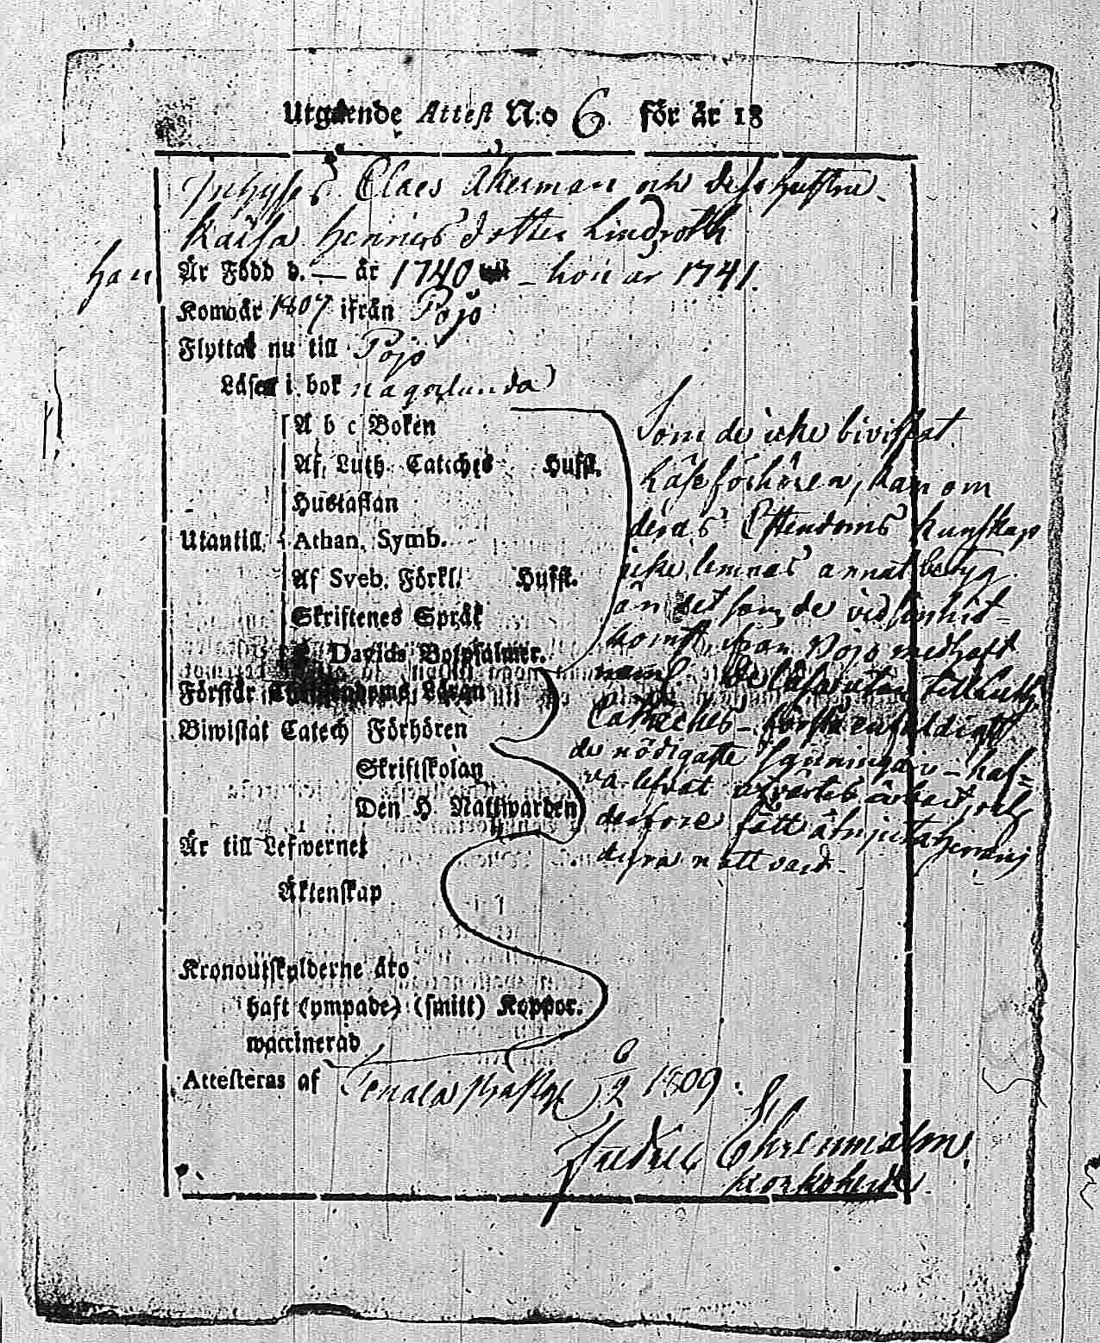 Utgående Attest N:o 6 för år 18
Inhyses Claes Åkerman och dess hustru
Kaisa Henrics dotter Lindroth
han Är Född d. — år 1740 — hon år 1741.
Kom år 1807 ifrån Pojo
Flyttat nu till Pojo
Läser i bok någorlunda
A b c Boken
Af Luth. Catiches Hufst.
Hustaflan
Utantill Athan. Symb.
Af Sveb. Förkl. Hufst.
Skriftenes Språk
Davids Botpsalmer.
Förstår Christendoms Läran
Biwistat Catech Förhören
Skriftskolan
Den H Nattwarden
Är till Lefwernet
Äktenskap
Kronoutskylderne äro
haft (ympade) (smitt) Koppor.
waccinerad
Som de icke bivistat
Läseförhören, kan om
deras Christendoms kunskap
icke lemnas annat betyg
än det som de vid sin hit-
komst från Pojo medhaft
neml. De läsa utan till Luth
Catheches – förstå enfaldigt
de nödigaste sanningar – haf-
va lefvat
derföre fått åtnjuta Herrans
dyra nattvard.
Attesteras af Tenala 6/2 1809.
Fredric Ehrenmalm
Kyrkoherde